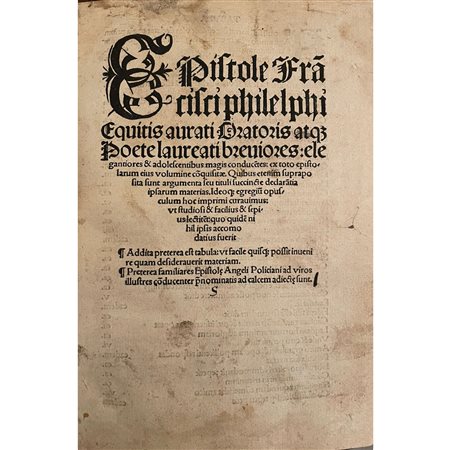 Epistole Frā
cisci philelphi
Equitis aurati Oratoris atqꝫ
Poete laureati breuiores: ele
gantiores & adolescentibus magis conducētes: ex toto episto
larum eius volumine cōquisitæ. Quibus etenim suprapo
sita sunt argumenta seu tituli succincte declarātia
ipsarum materias. Ideoqꝫ egregiū opus
culum hoc imprimi curauimus:
vt studiosi & facilius & sepi
us lectitēt quo quidē ni
hil ipsis accomo
datius fuerit
¶ Addita preterea est tabula: vt facile quisqꝫ possit inueni
re quam desiderauerit materiam.
¶ Preterea familiares Epistolę Angeli Policiani ad viros
illustres cōducenter p̄nominatis ad calcem adiectę sunt.
S